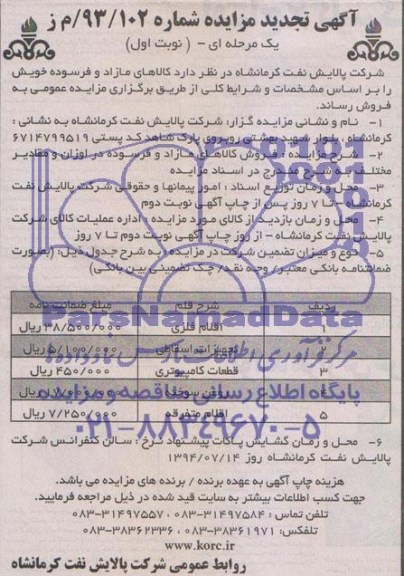 آگهی تجدید مزایده شماره ۹۳/۱۰۲/م ز
یک مرحله ای - ( نوبت اول )
شرکت پالایش نفت کرمانشاه در نظر دارد کالاهای مازاد و فرسوده خویش
را بر اساس مشخصات و شرایط کلی از طریق برگزاری مزایده عمومی به
فروش رساند.
۱- نام و نشانی مزایده گزار: شرکت پالایش نفت کرمانشاه به نشانی :
کرمانشاه ، بلوار شهید بهشتی روبروی پارک شاهد کد پستی ۶۷۱۴۷۹۹۵۱۹
۲- شرح مزایده : فروش کالاهای مازاد و فرسوده در اوزان و مقادیر
مختلف به شرح مندرج در اسناد مزایده
۳- محل و زمان توزیع اسناد : امور پیمانها و حقوقی شرکت پالایش نفت
کرمانشاه - تا ۷ روز پس از چاپ آگهی نوبت دوم
۴- محل و زمان بازدید از کالای مورد مزایده : اداره عملیات کالای شرکت
پالایش نفت کرمانشاه - از روز چاپ آگهی نوبت دوم تا ۷ روز
۵- نوع و میزان تضمین شرکت در مزایده : به شرح جدول ذیل: (بصورت
ضمانتنامه بانکی معتبر/ وجه نقد/ چک تضمینی بین بانکی)
ردیف شرح قلم مبلغ ضمانت نامه
۱ اقلام فلزی ۳۸/۵۰۰/۰۰۰ ریال
۲ تجهیزات اسقاطی ۵/۱۰۰/۰۰۰ ریال
۳ قطعات کامپیوتری ۴۵۰/۰۰۰ ریال
۴ روغن سوخته ریال
۵ اقلام متفرقه ۷/۲۵۰/۰۰۰ ریال
ParsNamadData
پایگاه اطلاع رسانی مناقصه و مزایده
۰۲۱-۸۸۳۴۹۶۷۰-۵
۶- محل و زمان گشایش پاکات پیشنهاد نرخ : سالن کنفرانس شرکت
پالایش نفت کرمانشاه روز ۱۳۹۴/۰۷/۱۴
هزینه چاپ آگهی به عهده برنده / برنده های مزایده می باشد.
جهت کسب اطلاعات بیشتر به سایت قید شده در ذیل مراجعه فرمایید.
تلفن تماس : ۳۱۴۹۷۵۸۴-۰۸۳ ۳۱۴۹۷۵۵۷-۰۸۳
تلفکس: ۳۸۳۶۱۹۷۱-۰۸۳ ۳۸۳۶۲۳۳۶-۰۸۳
www.korc.ir
روابط عمومی شرکت پالایش نفت کرمانشاه